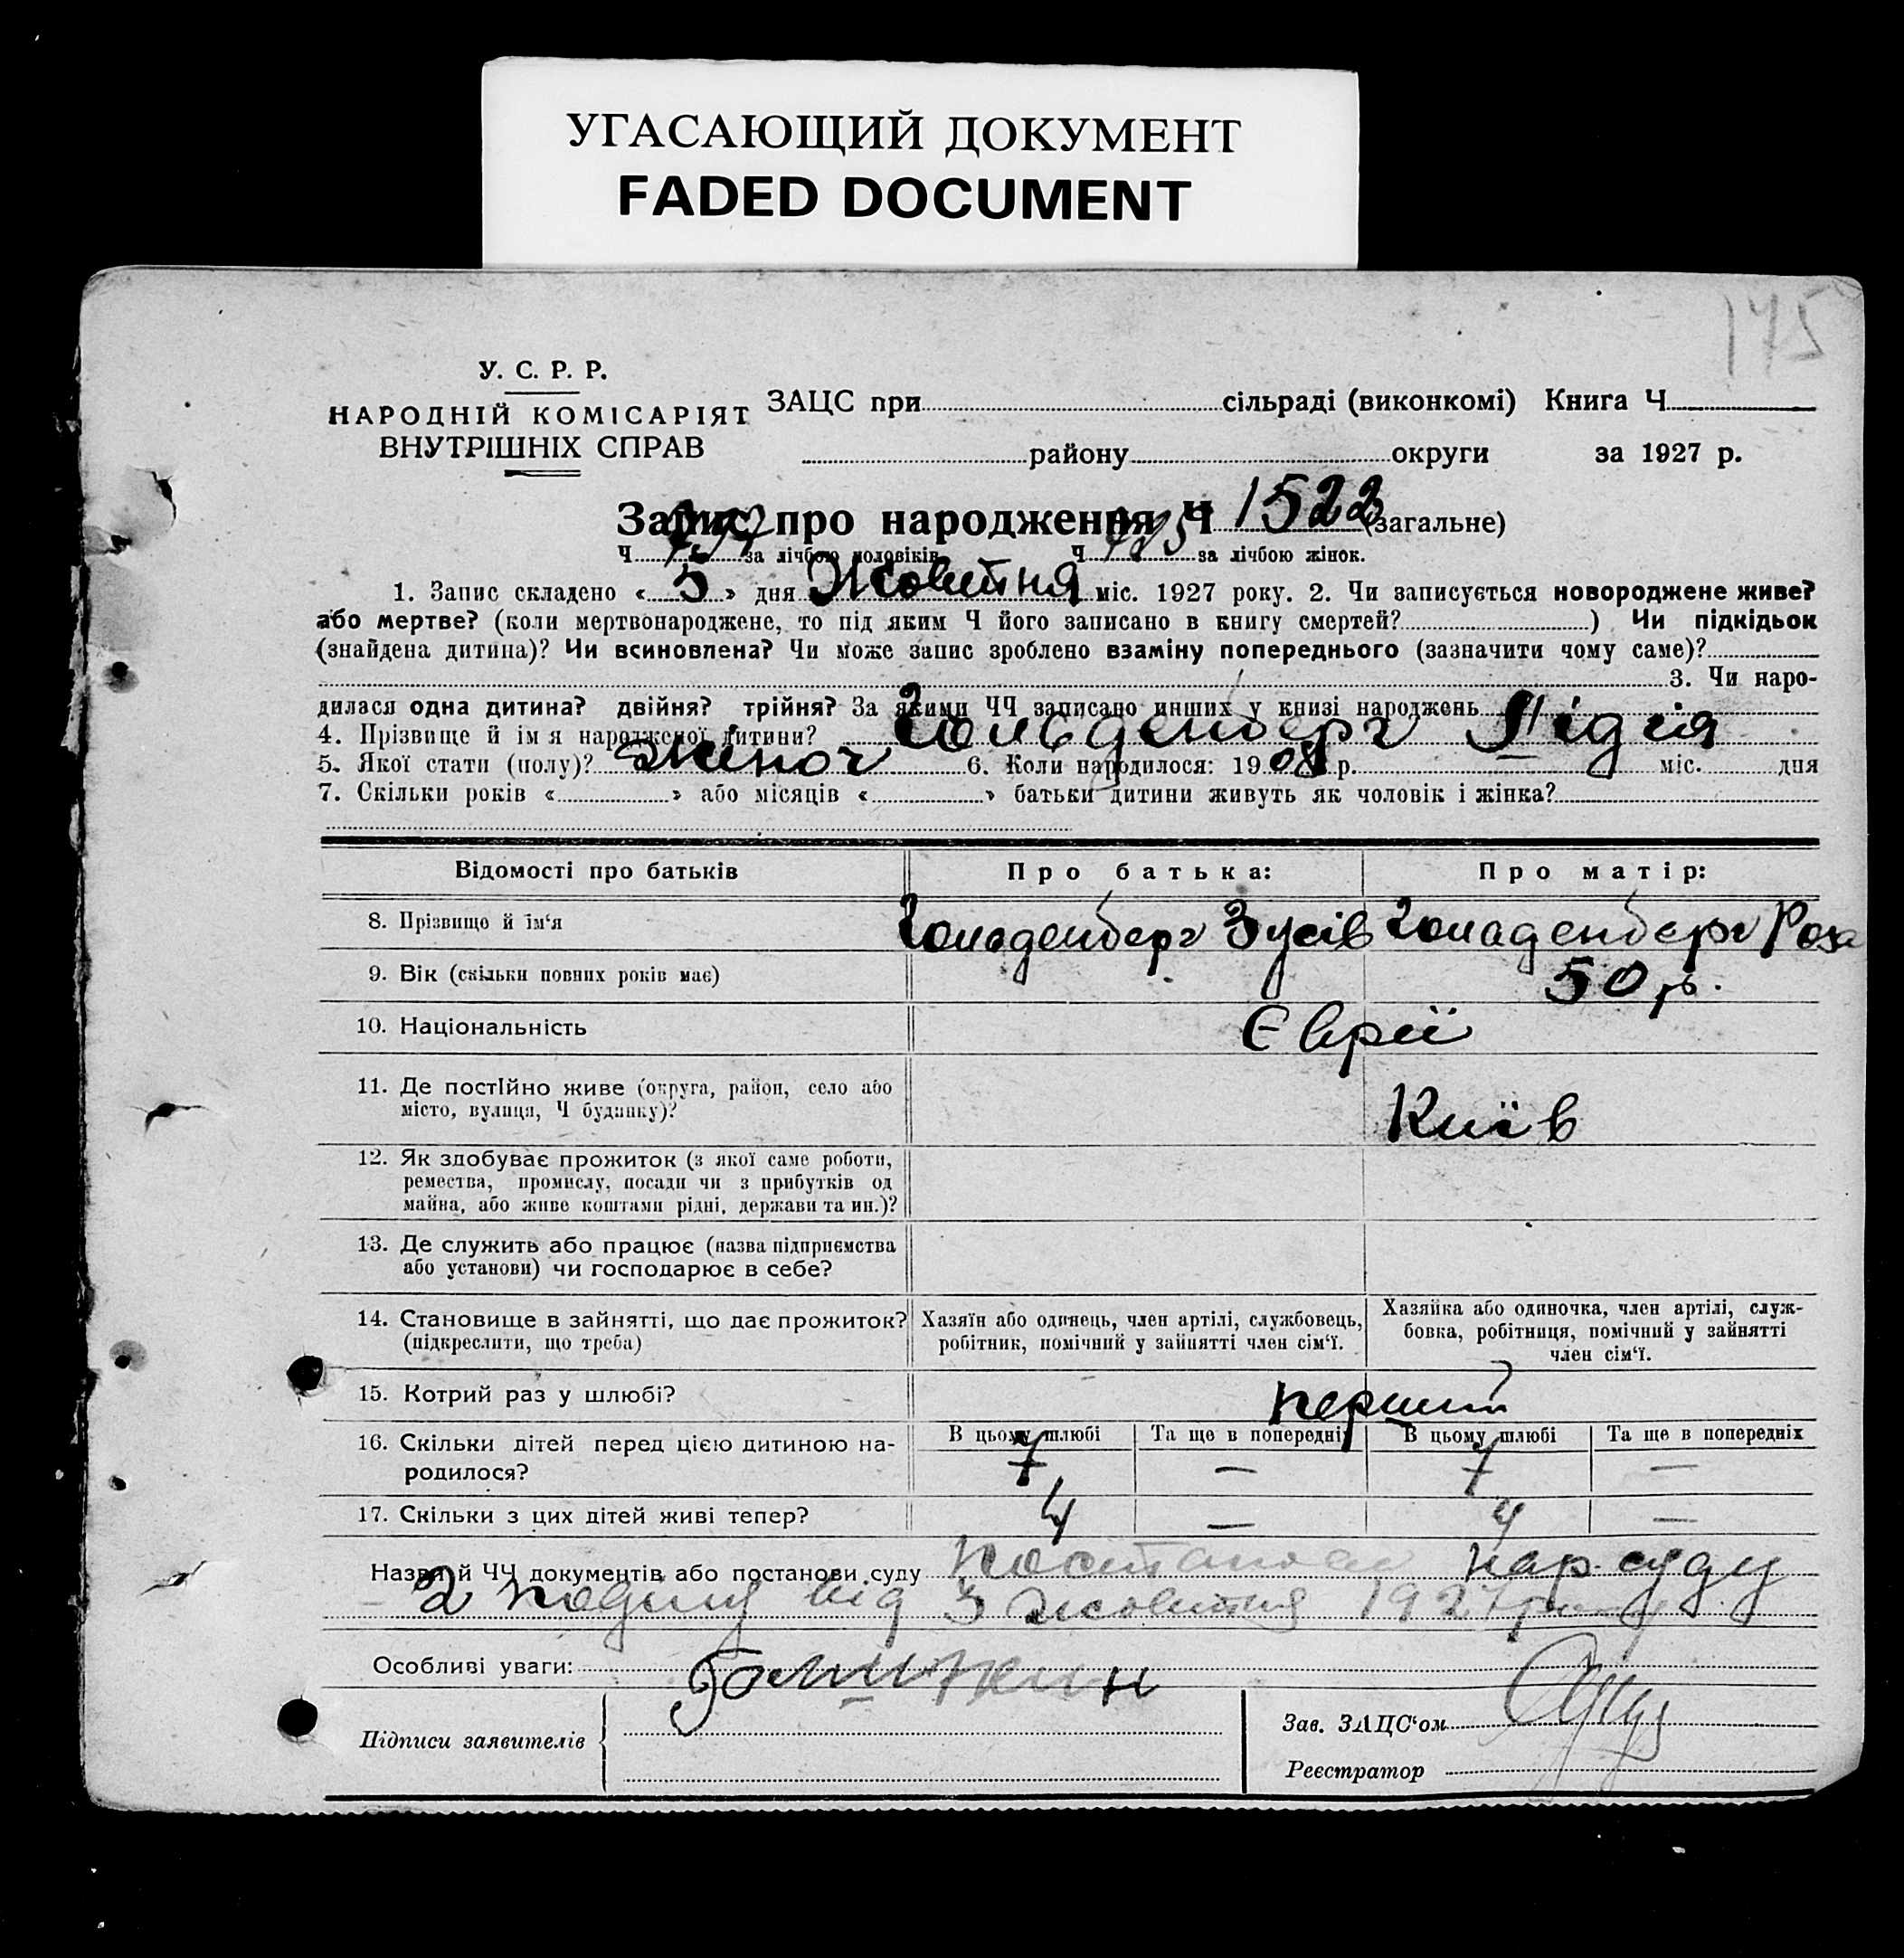 УГАСАЮЩИЙ ДОКУМЕНТ
FADED DOCUMENT
175
У. С. Р. Р.
НАРОДНІЙ КОМІСАРІЯТ
ВНУТРІШНІХ СПРАВ
ЗАЦС при сільраді (виконкомі) Книга Ч
району округи за 1927 р.
Запис про народження Ч 1522 (загальне)
Ч за лічбою чоловіків Ч за лічбою жінок.
1. Запис складено « 5 » дня Жовтня міс. 1927 року. 2. Чи записується новороджене живе?
або мертве? (коли мертвонароджене, то під яким Ч його записано в книгу смертей? ) Чи підкідьок
(знайдена дитина)? Чи всиновлена? Чи може запис зроблено взаміну попереднього (зазначити чому саме)?
3. Чи наро-
дилася одна дитина? двійня? трійня? За якими ЧЧ записано инших у книзі народжень
4. Прізвище й ім я народженої дитини? Гольденберг Лідія
5. Якої стати (полу)? Жіноч 6. Коли народилося: 1908 р. міс. дня
7. Скільки років « » або місяців « » батьки дитини живуть як чоловік і жінка?
Відомості про батьків Про батька: Про матір:
8. Прізвищо й ім‘я Гольденберг Зусів Гольденберг Роза
9. Вік (скільки повних років має) 50 р.
10. Національність Євреї
11. Де постІйно живе (округа, район, село або
місто, вулиця, Ч будинку)? Київ
12. Як здобуває прожиток (з якої саме роботи,
ремества, промислу, посади чи з прибутків од
майна, або живе коштами рідні, держави та ин.)?
13. Де служить або працює (назва підприємства
або установи) чи господарює в себе?
14. Становище в зайнятті, що дає прожиток?
(підкреслити, що треба)
Хазяїн або одинець, член артілі, службовець,
робітник, помічний у зайнятті член сім‘ї.
Хазяйка або одиночка, член артілі, служ-
бовка, робітниця, помічний у зайнятті
член сім‘ї.
15. Котрий раз у шлюбі? перший
16. Скільки дітей перед цією дитиною на-
родилося?
В цьому шлюбі Та ще в попередніх В цьому шлюбі Та ще в попередніх
7 — 7 —
17. Скільки з цих дітей живі тепер? 4 — 4 —
Назва й ЧЧ документів або постанови суду Постанова нар. суду
2 від 3 Жовтня 1927 року
Особливі уваги:
Підписи заявителів
Зав. ЗАЦС‘ом
Реєстратор